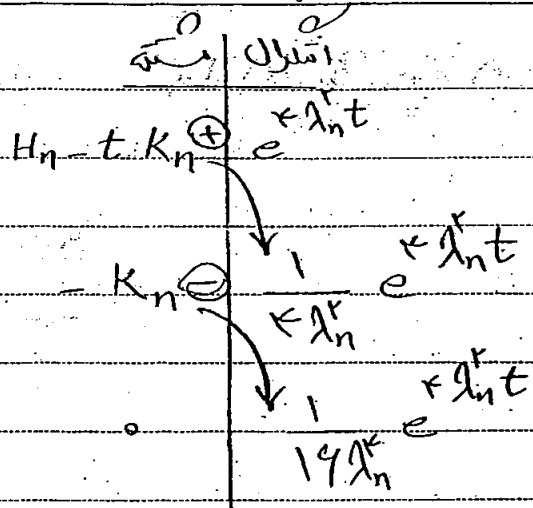 مشتق | انتگرال
Hₙ - t Kₙ ⊕ | e^{۴λₙ^۲ t}
- Kₙ ⊖ | ۱/(۴λₙ^۲) e^{۴λₙ^۲ t}
۰ | ۱/(۱۶λₙ^۴) e^{۴λₙ^۲ t}